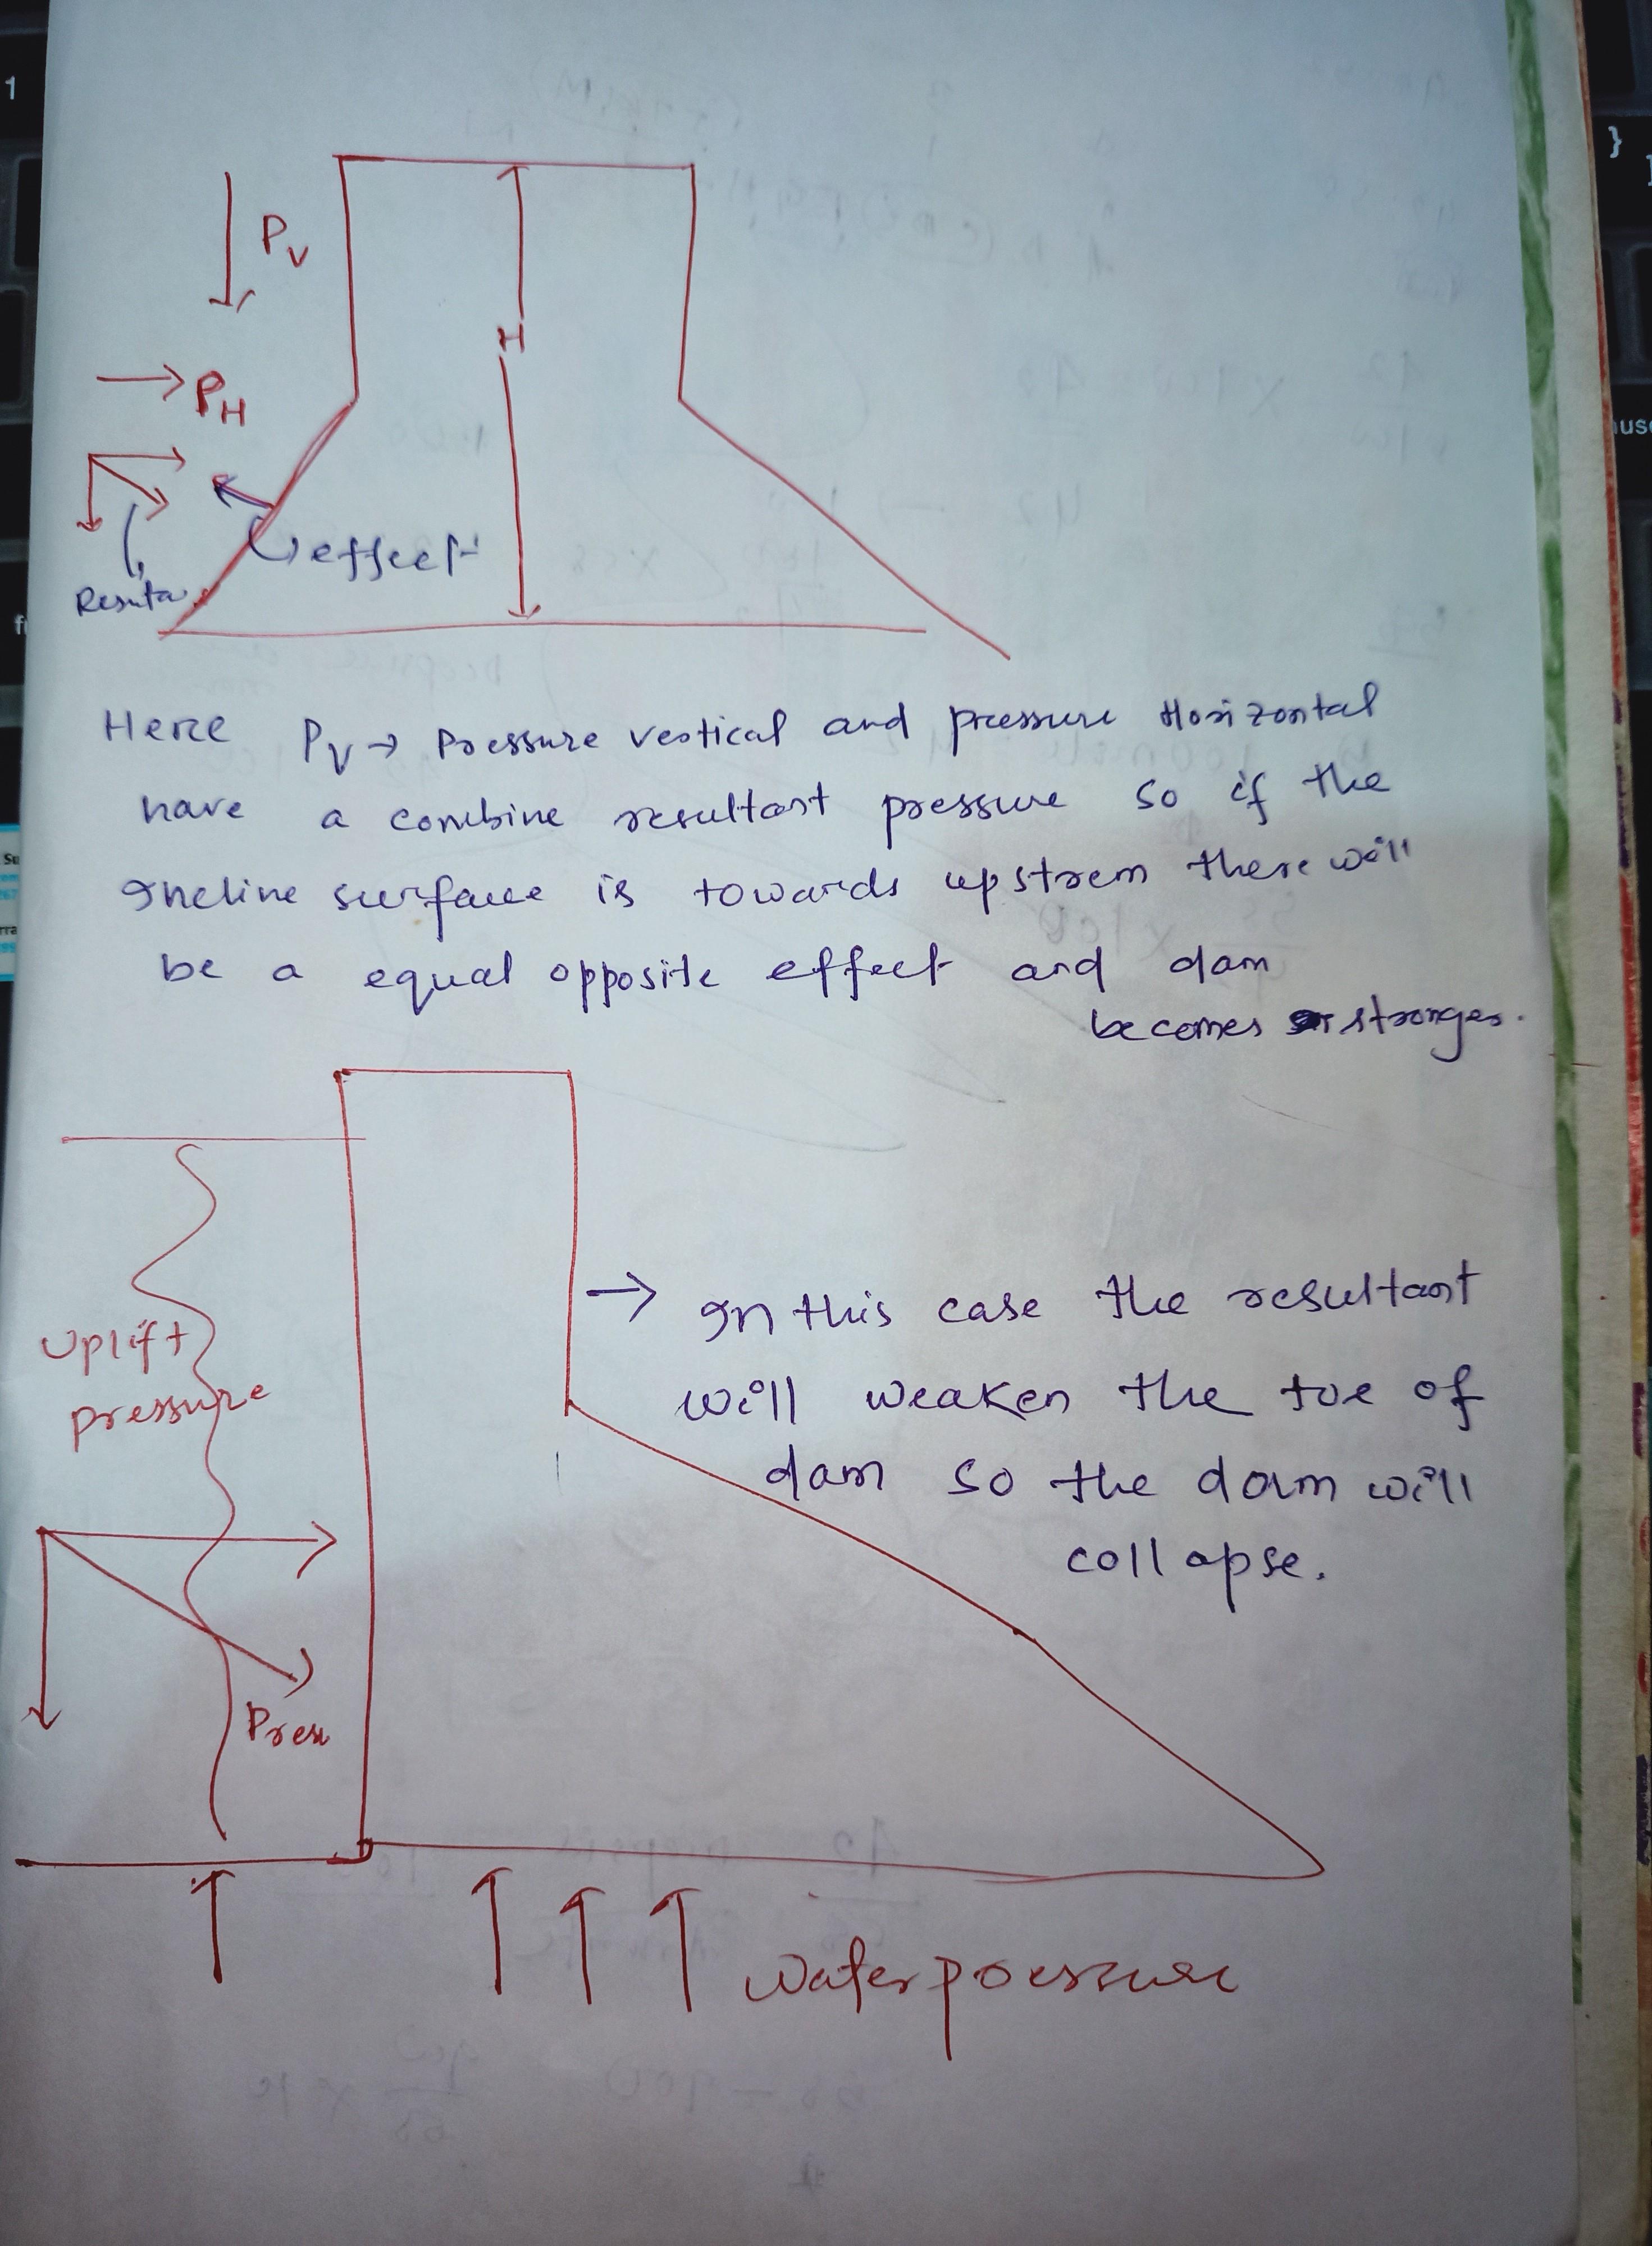 Pv
PH
H
effect
Resulta
Here Pv → Pressure vertical and pressure Horizontal
have a combine resultant pressure so if the
Incline surface is towards upstrem there will
be a equal opposite effect and dam
becomes stronger.
Uplift
pressure
→ In this case the resultant
will weaken the toe of
dam so the dam will
collapse.
Pres
Water pressure